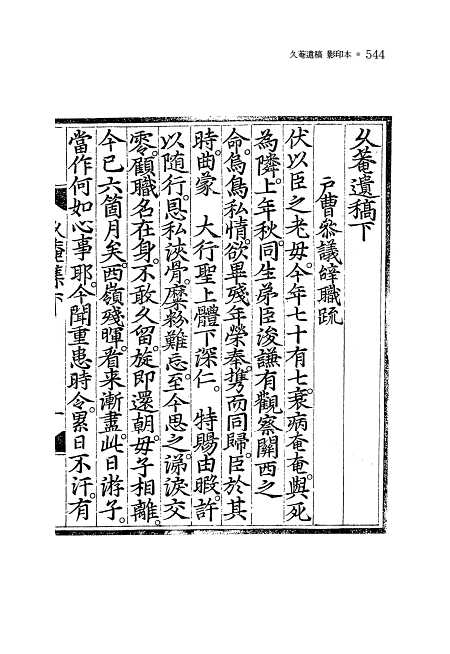 久菴遺稿 影印本 • 544
久菴遺稿下
戶曹參議辭職疏
伏以臣之老母。今年七十有七。衰病奄奄。與死
為隣。上年秋。同生弟臣浚謙有觀察關西之
命。烏鳥私情。欲畢殘年榮奉。携而同歸。臣於其
時。曲蒙 大行聖上體下深仁。 特賜由暇。許
以随行。恩私浹骨。糜粉難忘。至今思之。涕淚交
零。顧職名在身。不敢久留。旋即還朝。母子相離。
今已六箇月矣。西嶺殘暉。看来漸盡。此日游子。
當作何如心事耶。今聞重患時令。累日不汗。有
久菴集下 一